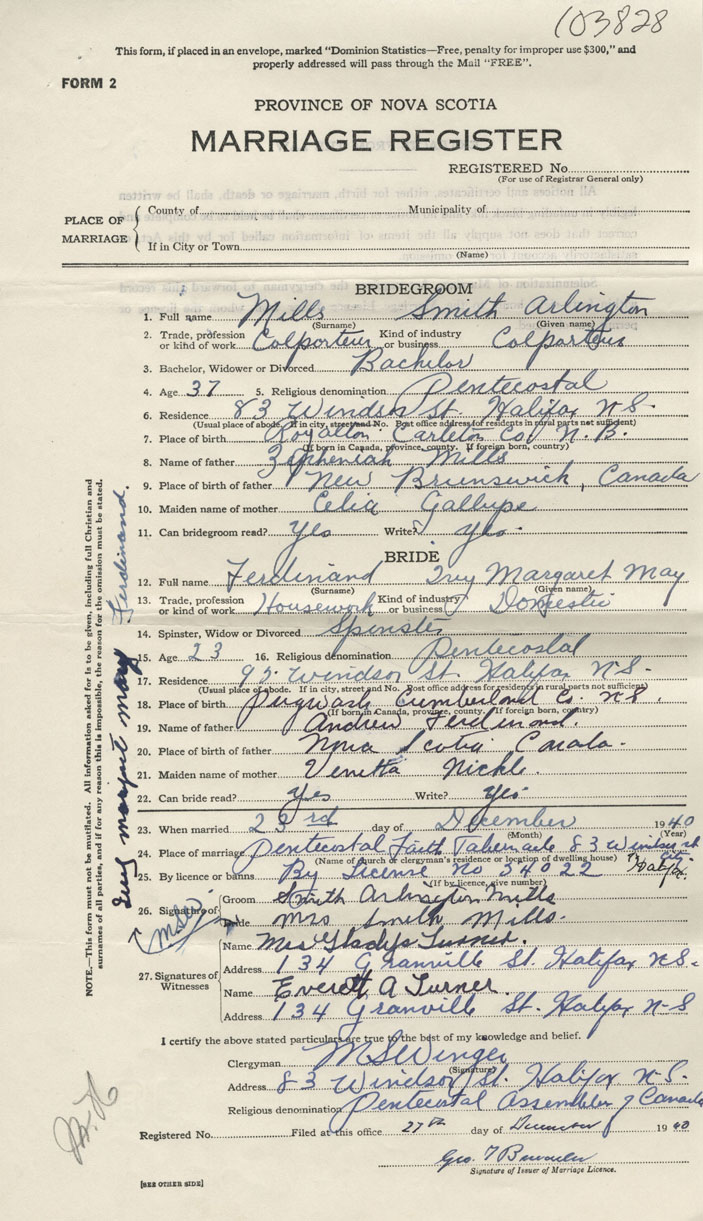 103828
This form, if placed in an envelope, marked "Dominion Statistics—Free, penalty for improper use $300," and
properly addressed will pass through the Mail "FREE".
FORM 2
PROVINCE OF NOVA SCOTIA
MARRIAGE REGISTER
REGISTERED No.
(For use of Registrar General only)
PLACE OF MARRIAGE
County of Municipality of
If in City or Town
(Name)
BRIDEGROOM
1. Full name Mills Smith Arlington
(Surname) (Given name)
2. Trade, profession or kind of work Colporteur Kind of industry or business Colporteur
3. Bachelor, Widower or Divorced Bachelor
4. Age 37 5. Religious denomination Pentecostal
6. Residence 83 Windsor St. Halifax N.S.
(Usual place of abode. If in city, street and No. Post office address for residents in rural parts not sufficient)
7. Place of birth Royalton Carleton Co. N.B.
(If born in Canada, province, county. If foreign born, country)
8. Name of father Zepheniah Mills
9. Place of birth of father New Brunswick, Canada
10. Maiden name of mother Celia Gallupe
11. Can bridegroom read? Yes Write? Yes.
BRIDE
12. Full name Ferdinand Ivy Margaret May
(Surname) (Given name)
13. Trade, profession or kind of work Housework Kind of industry or business Domestic
14. Spinster, Widow or Divorced Spinster
15. Age 23 16. Religious denomination Pentecostal
17. Residence Windsor St. Halifax N.S.
(Usual place of abode. If in city, street and No. Post office address for residents in rural parts not sufficient)
18. Place of birth Pugwash Cumberland Co. N.S.
(If born in Canada, province, county. If foreign born, country)
19. Name of father Andrew Ferdinand.
20. Place of birth of father Nova Scotia Canada.
21. Maiden name of mother Venetta Nickle.
22. Can bride read? Yes Write? Yes.
23. When married 23rd day of December 1940
(Month) (Year)
24. Place of marriage Pentecostal Faith Tabernacle 83 Windsor st
(Name of church or clergyman's residence or location of dwelling house) Halifax
25. By licence or banns By License No 34022
(If by licence, give number)
26. Signature of
Groom Smith Arlington Mills
Bride Mrs Smith Mills.
27. Signatures of Witnesses
Name Mrs Gladys Turner.
Address 134 Granville St. Halifax N.S.
Name Everett A Turner.
Address 134 Granville St. Halifax N-S
I certify the above stated particulars are true to the best of my knowledge and belief.
Clergyman M S Winger
(Signature)
Address 83 Windsor St. Halifax N-S.
Religious denomination Pentecostal Assemblies of Canada
Registered No. Filed at this office 27th day of December 1940
Geo.
Signature of Issuer of Marriage Licence.
[SEE OTHER SIDE]
NOTE.—This form must not be mutilated. All information asked for is to be given, including full Christian and
surnames of all parties, and if for any reason this is impossible, the reason for the omission must be stated.
Ivy margaret may Ferdinand.